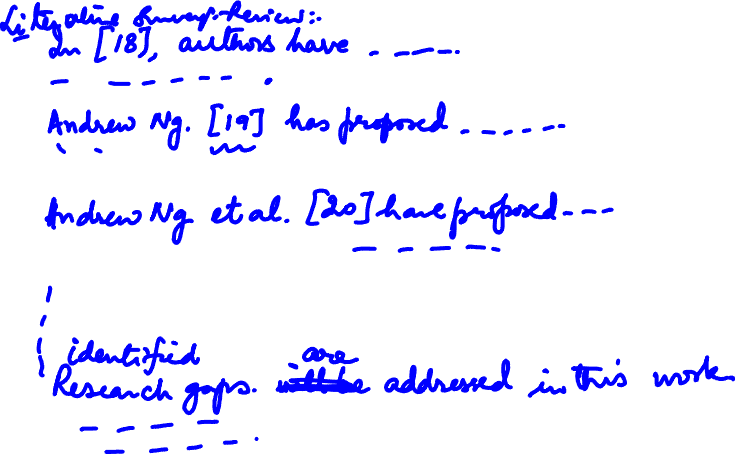 Literature Survey/Review:.
In [18], authors have - - - - -.
- - - - - - - .
Andrew Ng. [19] has proposed - - - - - -
Andrew Ng et al. [20] have proposed - - - -
- - - - -.
identified are
Research gaps. will be addressed in this work
- - - -
- - - - - .